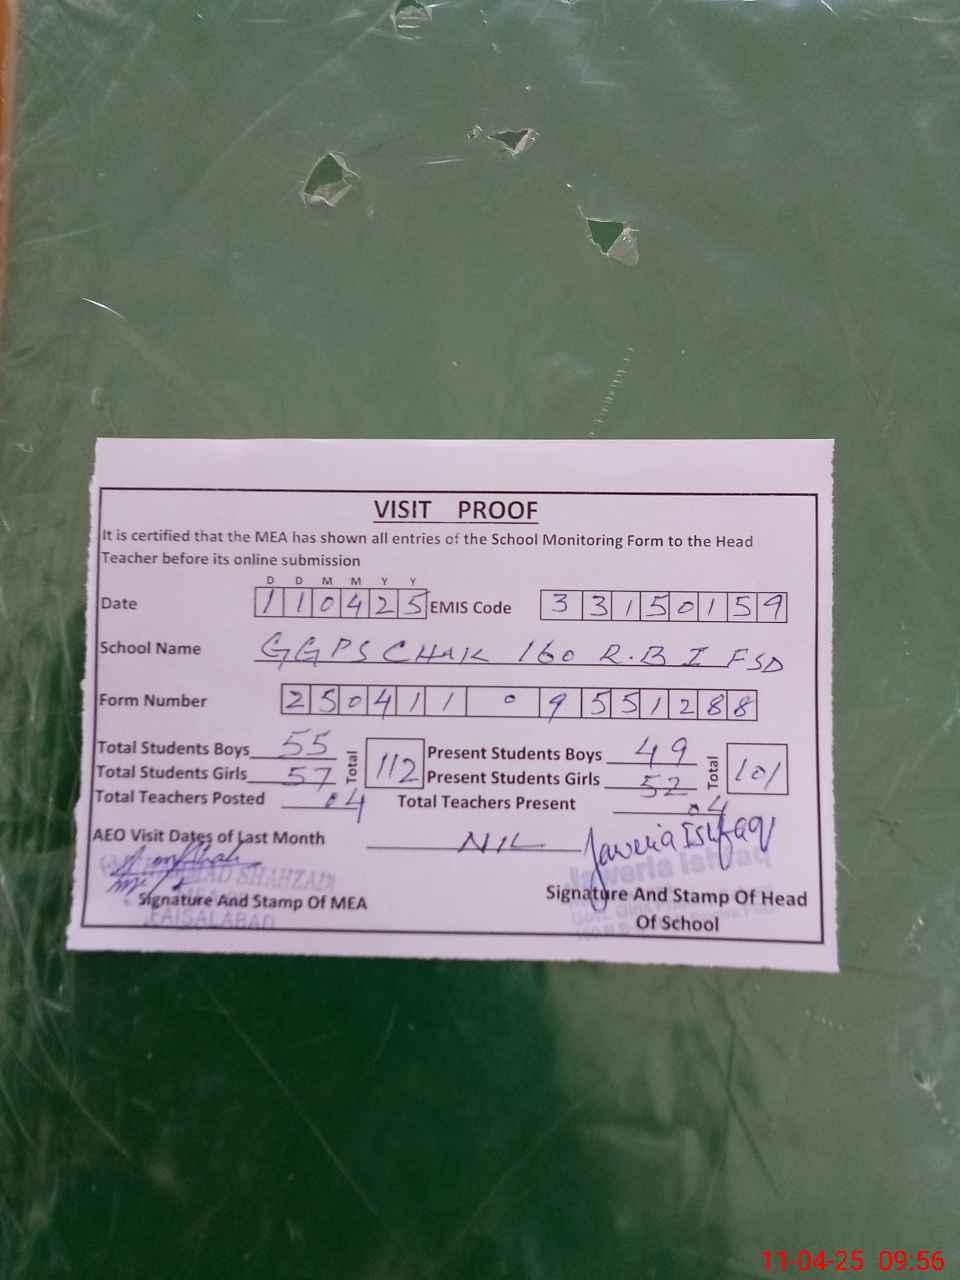 VISIT PROOF
It is certified that the MEA has shown all entries of the School Monitoring Form to the Head
Teacher before its online submission
D D M M Y Y
Date 110425 EMIS Code 33150159
School Name GGPS CHAK 160 R.B I FSD
Form Number 250411 0 9551288
Total Students Boys 55 Total 112 Present Students Boys 49 Total 101
Total Students Girls 57 Present Students Girls 52
Total Teachers Posted 04 Total Teachers Present 04
AEO Visit Dates of Last Month NIL Javeria Ishfaq
SHAHZAD Javeria Ishfaq
Signature And Stamp Of MEA Signature And Stamp Of Head
FAISALABAD Of School
11-04-25 09:56